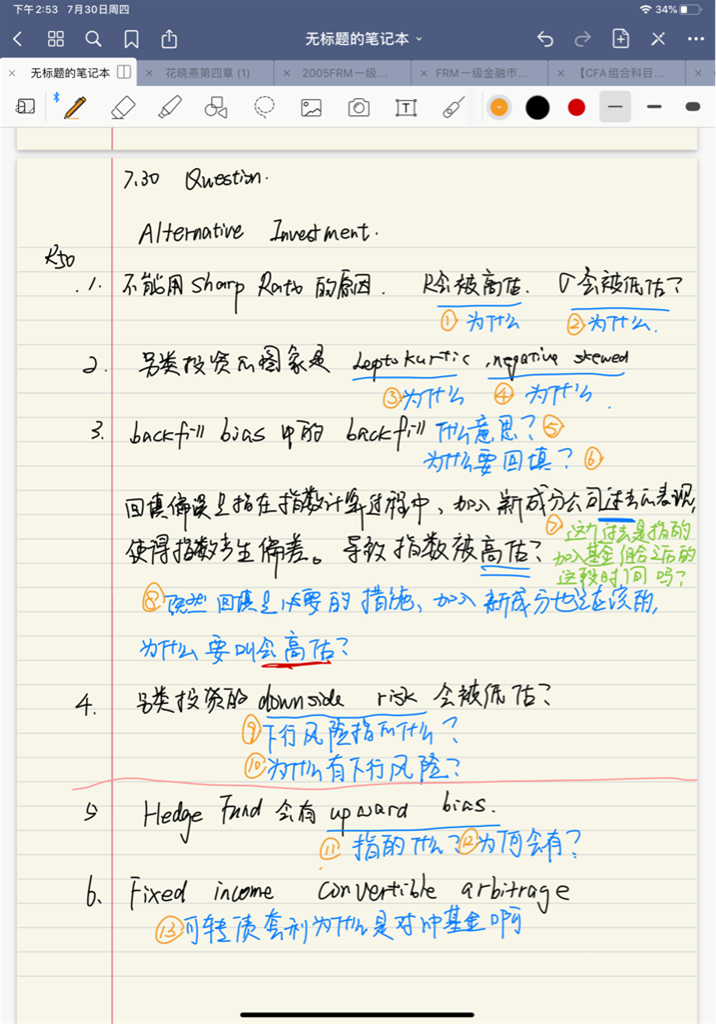 下午2:53 7月30日周四
34%
无标题的笔记本
× 无标题的笔记本 × 花晓燕第四章 (1) × 2005FRM一级... × FRM一级金融市... × 【CFA组合科目... ×
7.30 Question.
Alternative Investment.
R50
1. 不能用 Sharp Ratio 的原因. R会被高估. σ会被低估?
① 为什么 ②为什么.
2. 另类投资的图象是 Leptokurtic, negative skewed
③为什么 ④ 为什么.
3. backfill bias 中的 backfill 什么意思? ⑤
为什么要回填? ⑥
回填偏误是指在指数计算过程中、加入新成分公司过去的表现,
⑦ 这个过去是指的
使得指数产生偏差。导致指数被高估?
加入基金但是之后的
这段时间吗?
⑧既然回填是必要的措施、加入新成分也是应该的,
为什么要叫会高估?
4. 另类投资的 downside risk 会被低估?
⑨下行风险指的什么?
⑩为什么有下行风险?
5 Hedge Fund 会有 upward bias.
⑪ 指的什么?⑫为何会有?
6. Fixed income convertible arbitrage
⑬可转债套利为什么是对冲基金啊